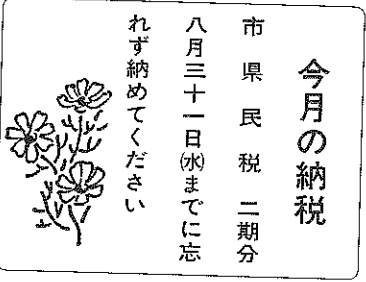 今月の納税
市県民税 二期分
八月三十一日㈬までに忘
れず納めてください